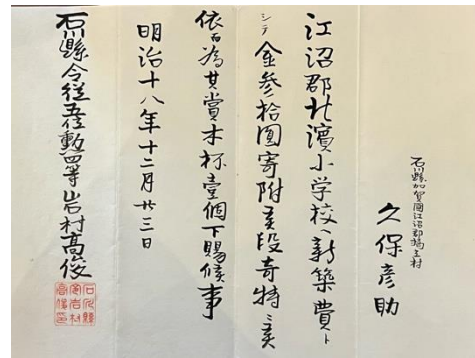 石川縣加賀國江沼郡橋立村
久保彦助
江沼郡北濱小学校ヘ新築費ト
シテ金参拾圓寄附候段奇特ニ候
依而為其賞木杯壹個下賜候事
明治十八年十二月廿三日
石川縣令従五位勲四等岩村高俊